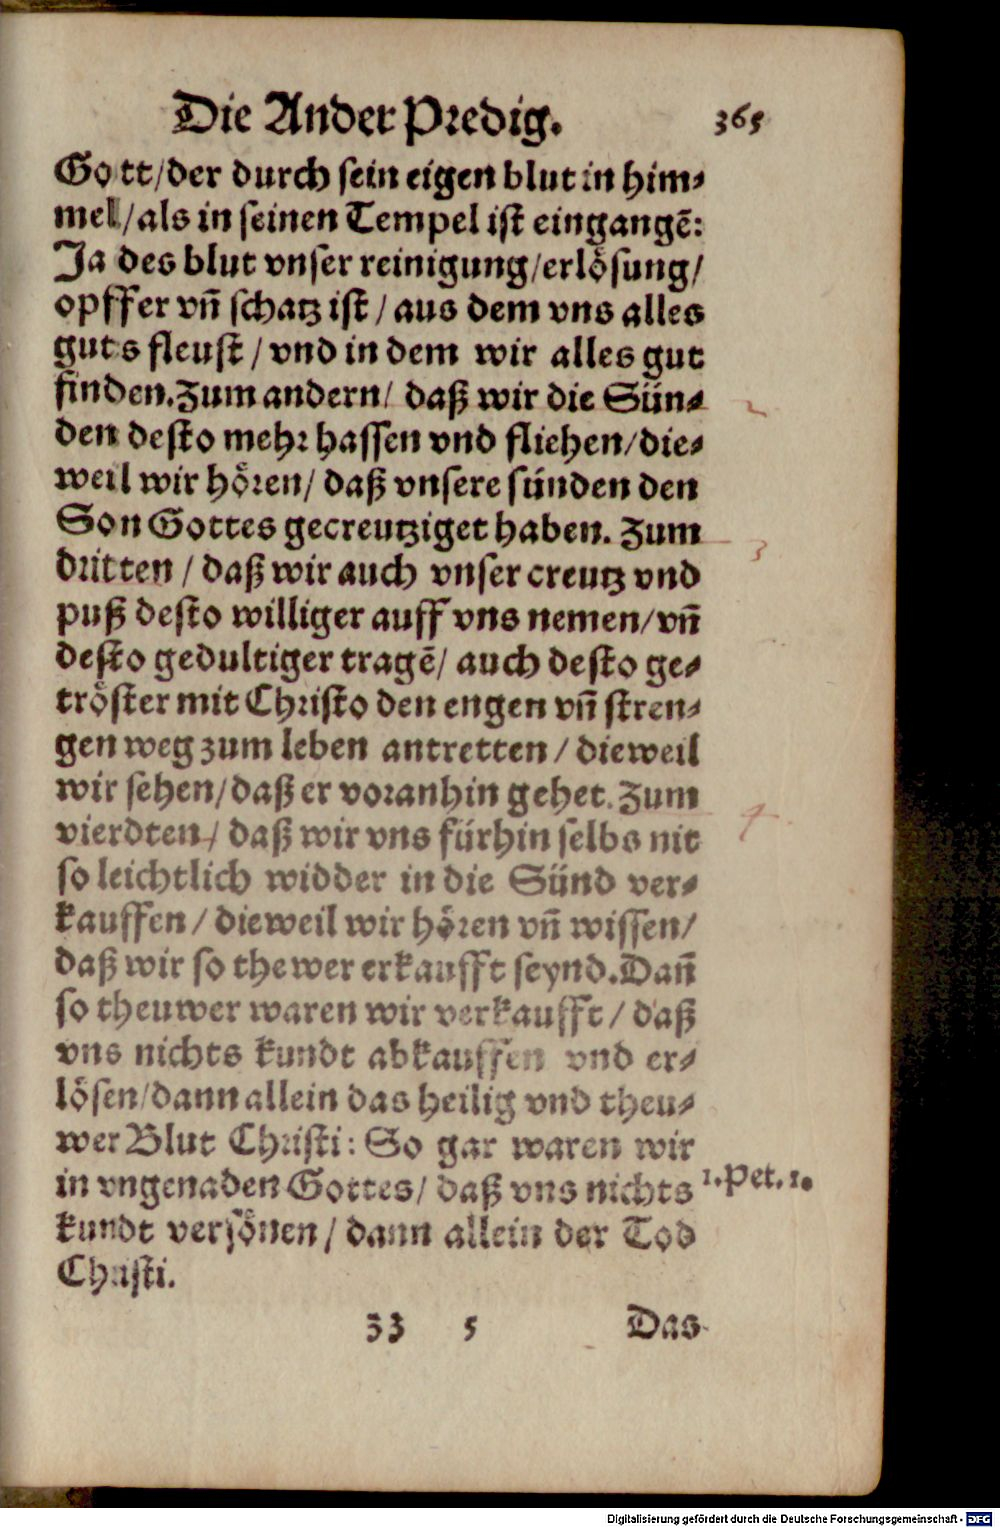 Die Ander Predig. 365
Gott/der durch sein eigen blut in him⸗
mel/als in seinen Tempel ist eingangē:
Ja des blut vnser reinigung/erlösung/
opffer vñ schatz ist/aus dem vns alles
guts fleust/vnd in dem wir alles gut
finden. Zum andern/ daß wir die Sün⸗
den desto mehr hassen vnd fliehen/die⸗
weil wir hören/ daß vnsere sünden den
Son Gottes gecreutziget haben. Zum
dritten/ daß wir auch vnser creutz vnd
puß desto williger auff vns nemen/vñ
desto gedultiger tragē/ auch desto ge⸗
tröster mit Christo den engen vñ stren⸗
gen weg zum leben antretten/ dieweil
wir sehen/daß er voranhin gehet. Zum
vierdten/ daß wir vns fürhin selbs nit
so leichtlich widder in die Sünd ver⸗
kauffen/ dieweil wir hören vñ wissen/
daß wir so thewer erkaufft seynd. Dañ
so theuwer waren wir verkaufft/ daß
vns nichts kundt abkauffen vnd er⸗
lösen/dann allein das heilig vnd theu⸗
wer Blut Christi: So gar waren wir
in vngenaden Gottes/ daß vns nichts
kundt versönen/ dann allein der Tod
Christi.
2
3
4
1. Pet. 1.
Zz 5 Das
Digitalisierung gefördert durch die Deutsche Forschungsgemeinschaft - DFG